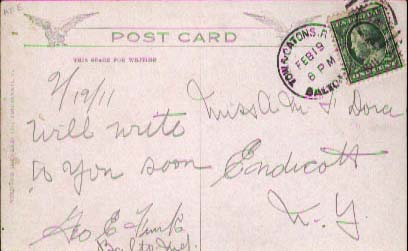 POST CARD
THIS SPACE FOR WRITING
2/19/11
Will write
to you soon
Geo E Funk
Balto Md.
TOW & CATONS. R.
FEB 19
6 PM
BALTO
ONE CENT
Miss A M F Dora
Endicott
N. Y.